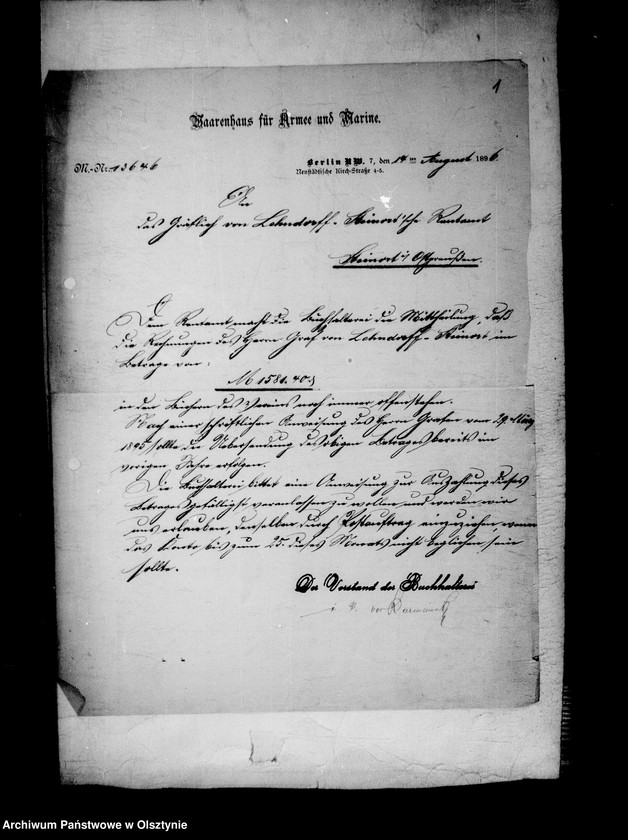 1
Waarenhaus für Armee und Marine.
M.-Nr. 13646
Berlin NW. 7, den 14ten August 1896.
Neustädtische Kirch-Straße 4-5.
An
das Gräflich von Lehndorff-Steinort'sche Rentamt
Steinort i/ Ostpreußen.
Dem Rentamt macht die Buchhalterei die Mittheilung, daß
die Rechnungen des Herrn Graf von Lehndorff-Steinort im
Betrage von:
M 1581.40
in den Büchern des Vereins noch immer offenstehen.
Nach einer schriftlichen Anweisung des Herrn Grafen vom 29. März
1895 sollte die Uebersendung des obigen Betrages bereits im
vorigen Jahre erfolgen.
Die Buchhalterei bittet eine Anweisung zur Auszahlung dieses
Betrages gefälligst veranlassen zu wollen und werden wir
uns erlauben, denselben durch Postauftrag einzuziehen, wenn
das Konto bis zum 25. dieses Monats nicht beglichen sein
sollte.
Der Vorstand der Buchhalterei
i. V. von
Archiwum Państwowe w Olsztynie